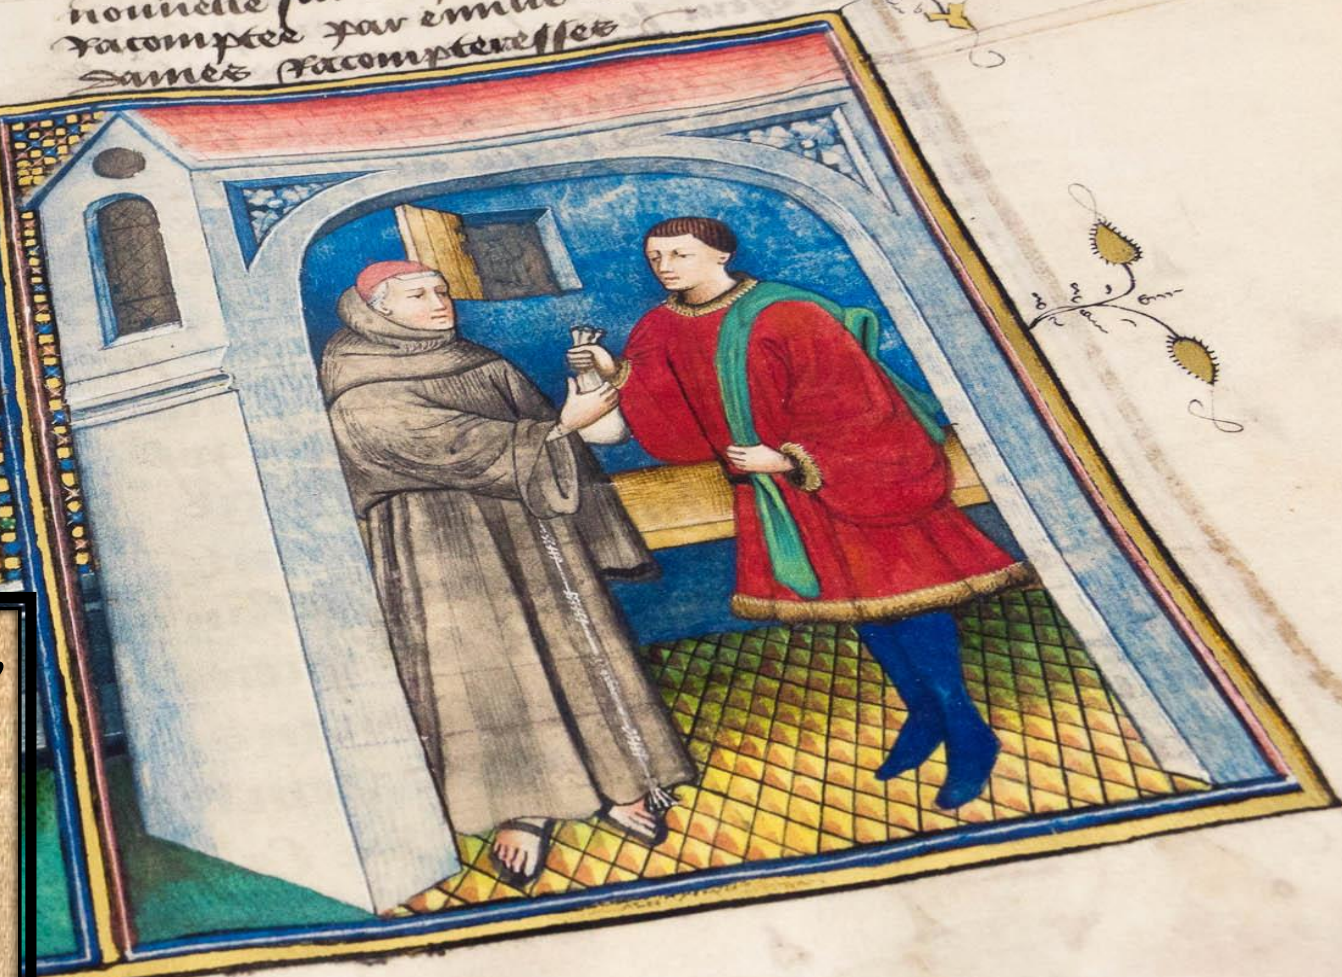 nouvelle
Racomptee par emilie
dames Racompteresses